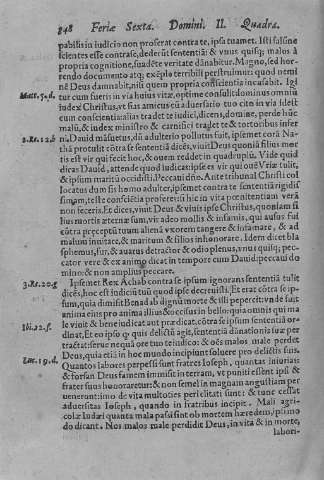 348 Feriæ Sexta. Domini. II. Quadra.
pabilis in iudicio non proferat contra te, ipsa tuamet. Isti falsone
scientes esse confrase, dederūt sententiā: & vnus quisq; malus à
propria cognitione, suadēte veritate dānabitur. Magno, sed hor-
rendo documento atq; exēplo terribili perstruimur quod nemi
Matt. 5. d. nē Deus damnabit, nisi quem propria conscientia incusabit. Igi
tur cum fueris in via huius vitæ, optime consulit dominus omniū
iudex Christus, vt sias amicus cū aduersario tuo cito in via id est
cum conscientia: alias tradet te iudici, dicens, domine, perde hūc
malū, & iudex ministro & carnifici tradet te & tortoribus infer
2. Re. 12. b ni. Dauid māsuetus, dū adulterio pollutus fuit, ipsemet corā Na-
thā protulit cōtra se sententiā dicēs, viuit Deus quoniā filius mor
tis est vir qui fecit hoc, & ouem reddet in quadruplū. Vide quid
dicas Dauid, attende quod iudicas: ipse es vir qui ouē Vriæ tulit,
& ipsum maritū occidisti. Peccaui dñe. Ante tribunal Christi col
locatus dum sis homo adulter, ipsemet contra te sententiā rigidis
simam, teste conscietia proferens: hic in vita pœnitentiam verā
non feceris. Et dices, viuit Deus & viuis ipse Christus, quoniam fi
lius mortis æternæ sum, vir adeo mollis & infamis, qui ausus fui
cōtra præceptū tuum alienā vxorem tangere & infamare, & ad
malum inuitare, & maritum & filios inhonorare. Idem dicet bla
sphemus, fur, & auarus detractor & odio plenus, vnus quisq; pec-
cator vere & ex animo dicat in tempore cum Dauid: peccaui do
mino: & non amplius peccare.
3. Re. 20. g Ipsemet Rex Achab contra se ipsum ignorans sententiā tulit
dicēs, hoc est iudiciū tuū quod ipse decreuisti. Et erat cōtra se ip-
sum, quia dimisit Benadab dignū morte & illi pepercit: vnde fuit
anima eius pro anima illius: & occisus in bello: quia omnis qui ma
Ibi. 22. f. le viuit & bene iudicat aut prædicat, cōtra se ipsum sententiā or-
dinat, Et eo ipso quis delictū agit, sententiā dānationis suæ per
tractat: serue nequā ore tuo te iudico: & oēs malos male perdet
Deus, quia etiā in hoc mundo incipiunt soluere pro delictis suis.
Luc. 19. d. Quantos labores perpessi sunt fratres Ioseph, quantas iniurias
& forsan Deus famem immisit in terram, vt puniti essent ipsi &
frater suus honoraretur: & non semel in magnam angustiam per
uenerunt: imo de vita multoties periclitati sunt: & tunc cessat
aduersitas Ioseph, quando in fratribus incipit. Mali agri-
colæ Iudæi quanta mala passi sint ob mortem hæredem, primo
do dicant. Nos malos male perdidit Deus, in vita & in morte,
labori-